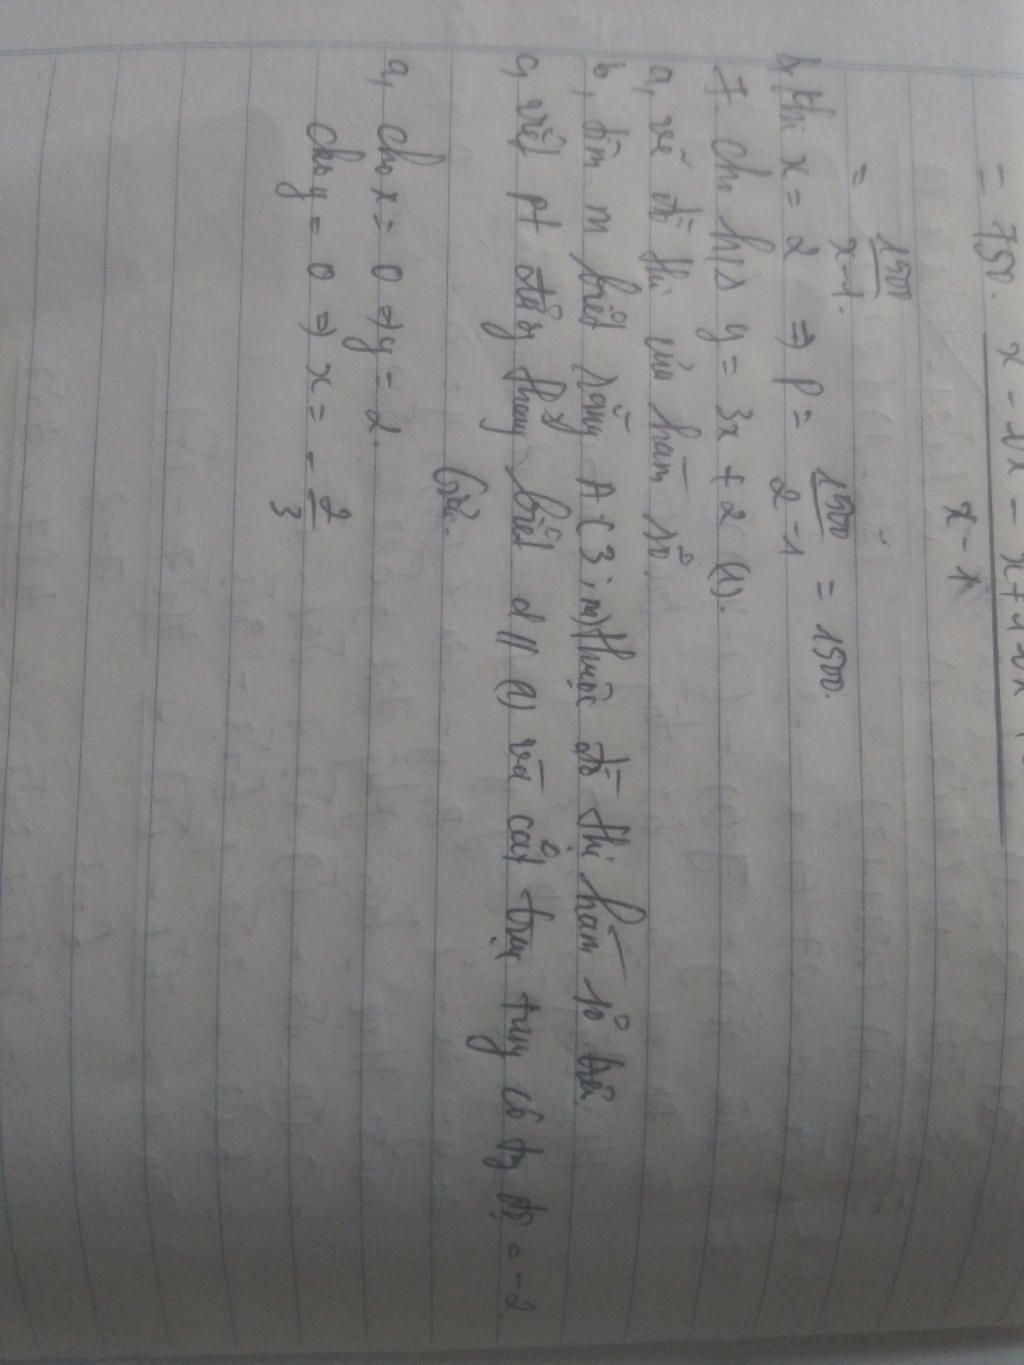 = 750. x - √x - x + 1 √x
x - 1
= 1500
x-1.
b, Khi x = 2 => P = 1500 = 1500.
2 - 1
7. cho h/s y = 3x + 2 (1).
a, vẽ đồ thị của hàm số.
b, tìm m biết rằng A(3; m) thuộc đồ thị hàm số trên.
c, viết pt đường thẳng biết d // (1) và cắt trục tung có tung độ = -2
Giải.
a, cho x = 0 => y = 2.
cho y = 0 => x = - 2
3